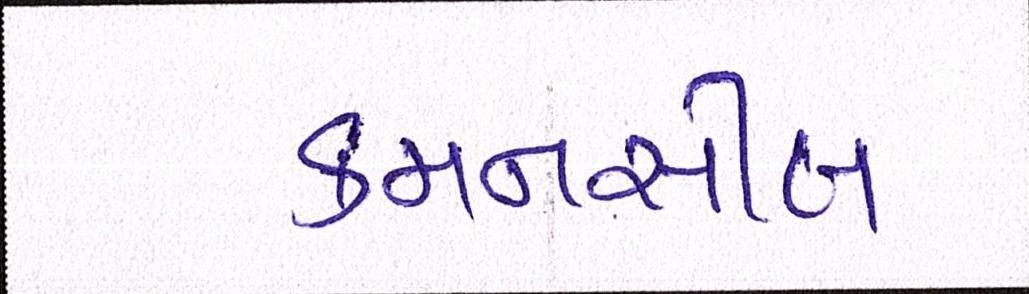 કમનસીબ